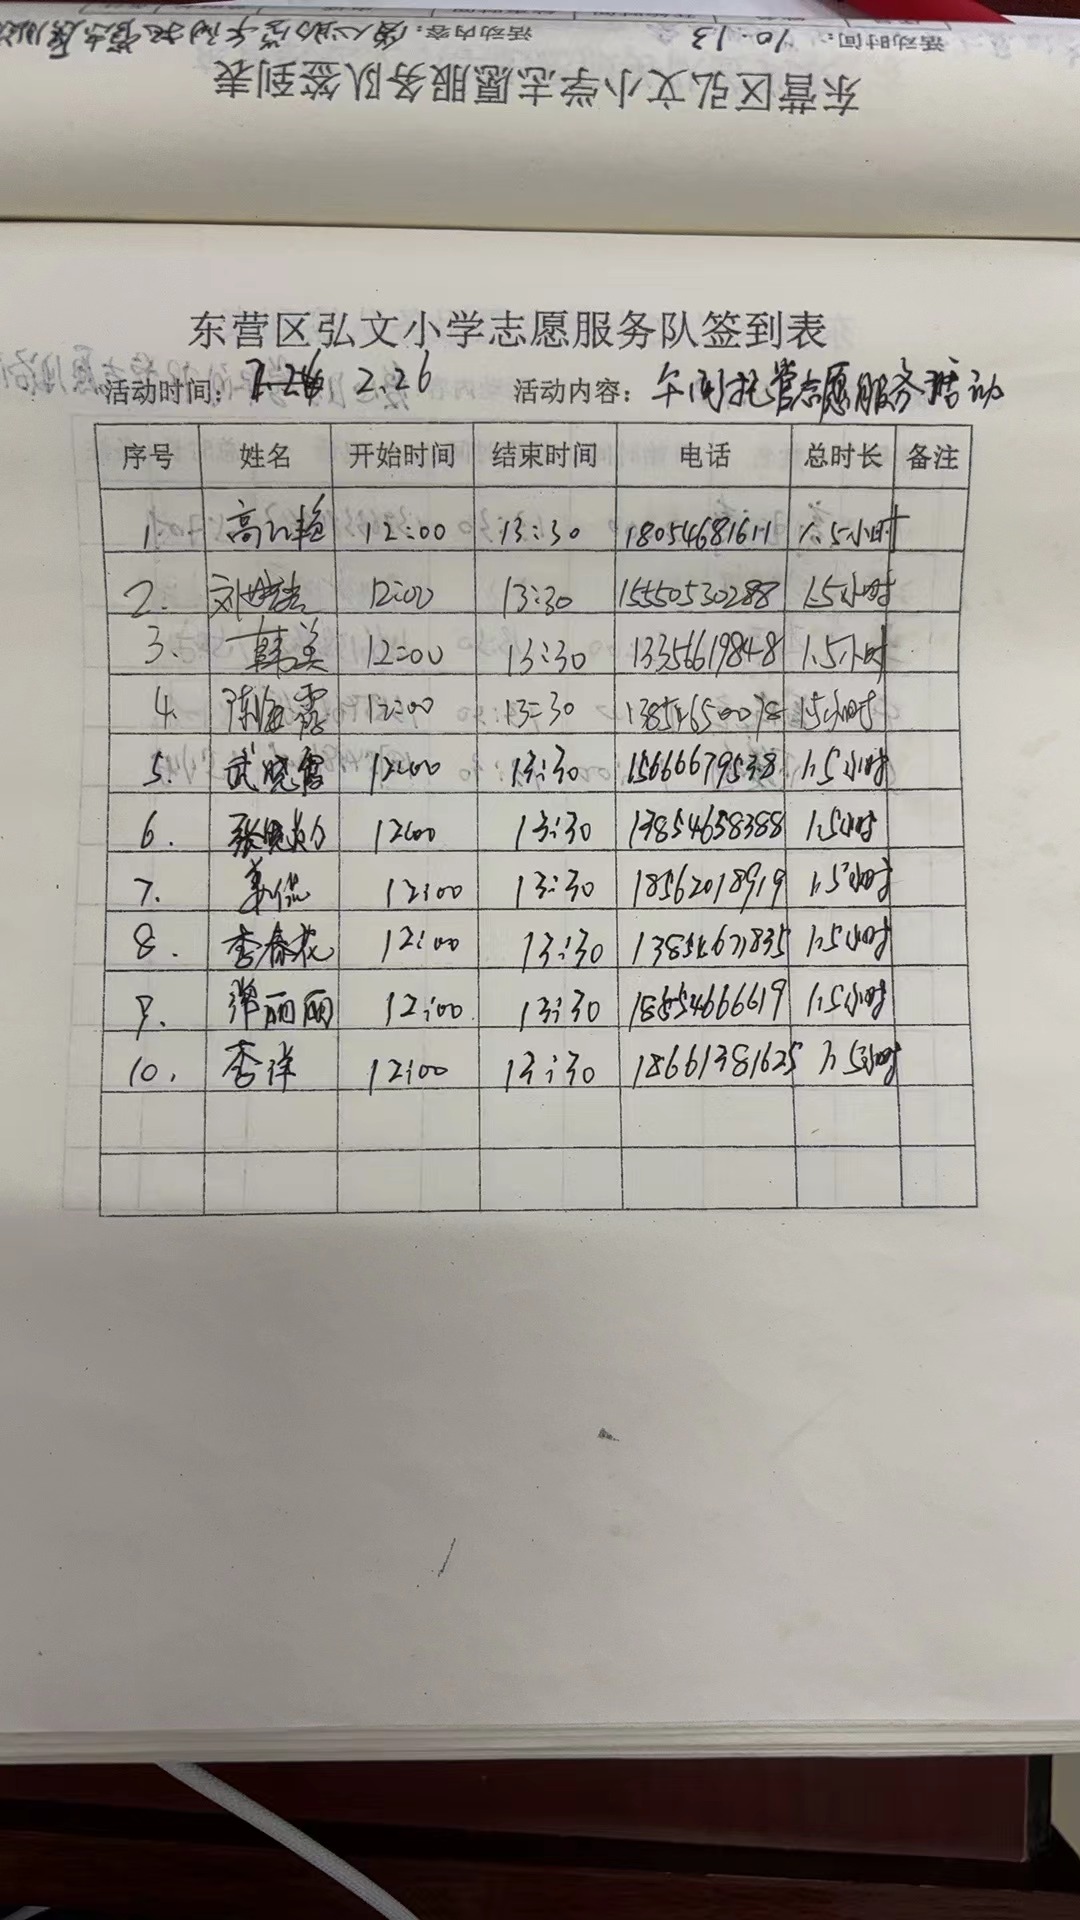 活动时间：10.13 活动内容：
东营区弘文小学志愿服务队签到表
东营区弘文小学志愿服务队签到表
活动时间： 2.26 活动内容：午间托管志愿服务活动
序号 姓名 开始时间 结束时间 电话 总时长 备注
1. 高红艳 12:00 13:30 18054681611 1.5小时
2. 刘 12:00 13:30 15550530288 1.5小时
3. 韩美 12:00 13:30 13356619848 1.5小时
4. 陈海霞 12:00 13:30 13854650078 1.5小时
5. 武晓霞 12:00 13:30 15666679538 1.5小时
6. 张 12:00 13:30 13854658388 1.5小时
7. 12:00 13:30 18562018919 1.5小时
8. 李春花 12:00 13:30 1.5小时
9. 张丽丽 12:00 13:30 18654666619 1.5小时
10. 李洋 12:00 13:30 18661381625 1.5小时